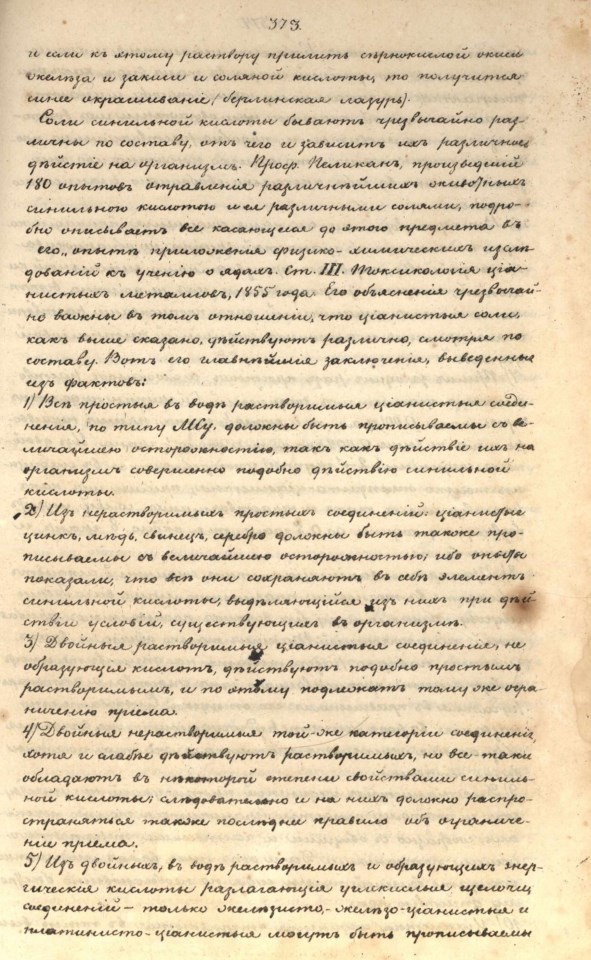 373.
и если къ этому раствору прилить сѣрнокислой окиси
желѣза и закиси и соляной кислоты, то получится
синее окрашиваніе (берлинская лазурь).
Соли синильной кислоты бываютъ чрезвычайно раз-
личны по составу, отъ чего и зависитъ ихъ различное
дѣйствіе на организмъ. Проф. Пеликанъ, произведшій
180 опытовъ отравленія различнѣйшихъ животныхъ
синильною кислотою и ея различными солями, подро-
бно описываетъ все касающееся до этого предмета въ
его „опытъ приложенія физико-химическихъ изслѣ-
дованій къ ученію о ядахъ. Ст. III. Токсикологія ціа-
нистыхъ металловъ, 1855 года. Его объясненія чрезвычай-
но важны въ томъ отношеніи, что ціанистыя соли,
какъ выше сказано, дѣйствуютъ различно, смотря по
составу. Вотъ его главнѣйшія заключенія, выведенныя
изъ фактовъ:
1) Всѣ простыя въ водѣ растворимыя ціанистыя соеди-
ненія, по типу MCy. должны быть прописываемы съ ве-
личайшею осторожностію, такъ какъ дѣйствіе ихъ на
организмъ совершенно подобно дѣйствію синильной
кислоты.
2) Изъ нерастворимыхъ простыхъ соединеній: ціанистые
цинкъ, мѣдь, свинецъ, серебро должны быть также про-
писываемы съ величайшею осторожностью; ибо опыты
показали, что всѣ они сохраняютъ въ себѣ элементъ
синильной кислоты, выдѣляющійся изъ нихъ при дѣй-
ствіи условій, существующихъ въ организмѣ.
3) Двойныя растворимыя ціанистыя соединенія, не
образующія кислотъ, дѣйствуютъ подобно простымъ
растворимымъ, и по этому подлежатъ тому же огра-
ниченію пріема.
4) Двойныя нерастворимыя той-же категоріи соединенія,
хотя и слабѣе дѣйствуютъ растворимыхъ, но все-таки
обладаютъ въ нѣкоторой степени свойствами синиль-
ной кислоты; слѣдовательно и на нихъ должно распро-
страняться также послѣднее правило объ ограниче-
ніе пріема.
5) Изъ двойныхъ, въ водѣ растворимыхъ и образующихъ энер-
гическія кислоты разлагающія углекислыя щелочи
соединеній — только желѣзисто-, желѣзо-ціанистыя и
платинисто-ціанистыя могутъ быть прописываемы